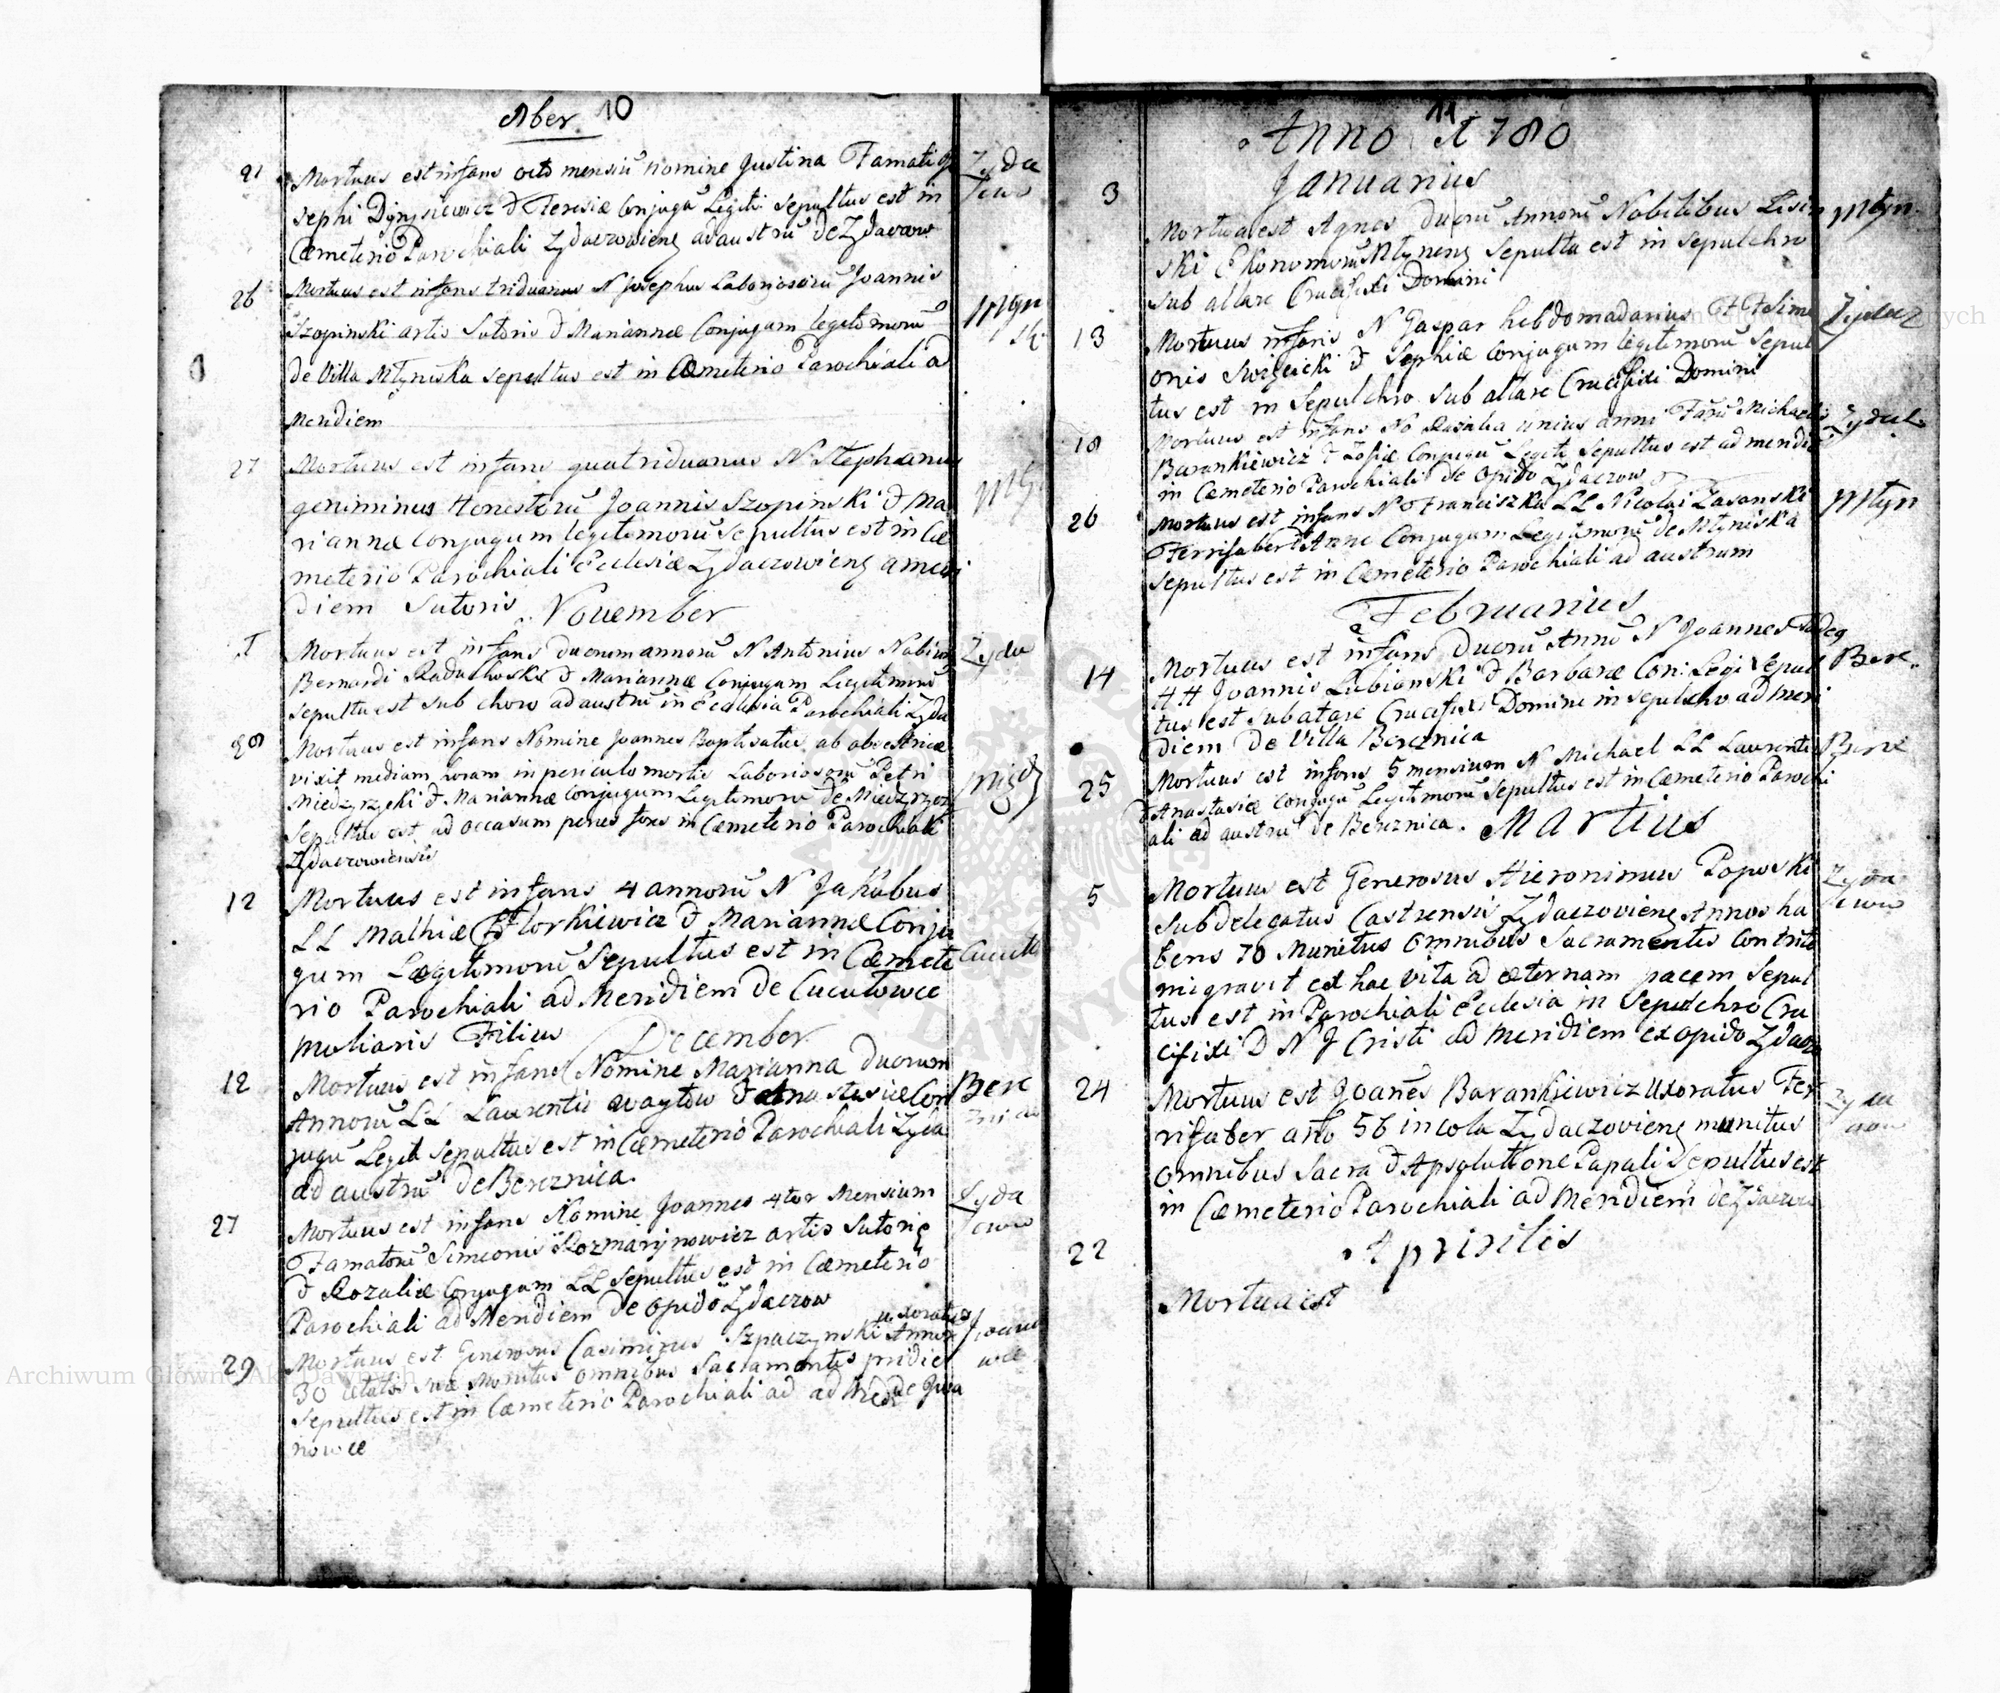 8ber 10
21 Mortuus est infans octo mensiū nomine Justina Famati Jo Zyda
sephi Dynysiewicz & Teresiæ Conjugū Legiti Sepultus est in czow
Cæmeterio Parochiali Zydaczoviens ad austrū de Zydaczow
26 Mortuus est infans triduanus N Josephus Laboriosorū Joannis Młyn
Szopinski artis Sutoris & Mariannæ Conjugum legitimorū isk
de Villa Młyniska sepultus est in Cæmeterio Parochiali ad
Meridiem
27 Mortuus est infans quatriduanus N Stephanus
geniminus Honestorū Joannis Szopinski & Ma Mły
riannæ Conjugum legitimorū Sepultus est in Cæ
meterio Parochiali Ecclesiæ Zydaczowiens a meri
diem Sutoris. November
1 Mortuus est infans duorum annorū N Antonius Nobiliū Zyda
Bernardi Raduchoski & Mariannæ Conjugum Legitimorū
sepultu est sub choro ad austrū in Ecclesia Parochiali Zyda
28 Mortuus est infans Nomine Joannes Baptisatus ab obsestrice
vixit mediam horam in periculo mortis Laboriosorū Petri
Miedzyrzecki & Mariannæ Conjugum Legitimorū de Miedzyrzecz
Sepultus est ad occasum penes fores in Cæmeterio Parochiali
Zydaczowiensis
12 Mortuus est infans 4 annorū N Jakubus
LL Mathiæ Florkiewicz & Mariannæ Conju
gum Legitimorū Sepultus est in Cæmete Cucuło
rio Parochiali ad Meridiem de Cucułowce
muliaris Filius December
12 Mortuus est infans Nomine Marianna duorum Bere
Annorū LL Laurentii Woytow & Anastasiæ Con znica
jugū Legit Sepultus est in Cæmeterio Parochiali Zyda
ad austrū de Bereznica.
27 Mortuus est infans Nomine Joannes 4tor Mensium Zyda
Famatorū Simeonis Rozmarynowicz artis Sutoriæ czow
& Rozaliæ Conjugum LL Sepultus est in Cæmeterio
Parochiali ad Meridiem de opido Zydaczow
uxoratus
29 Mortuus est Generosus Casimirus Szpaczynski Annor Iwano
30 ætatis suæ Munitus omnibus Sacramentis pridie wce
Sepultus est in Cæmeterio Parochiali ad ad Med de Jwa
nowce
11
Anno 1780
Januarius
3 Mortua est Agnes duorū Annorū Nobilibus Lisin Młyn
ski Ekonomorū Młynens Sepulta est in Sepulchro
sub altare Crucifixi Domini
13 Mortuus infans N Gaspar hebdomadarius FF Sime Zydacz
onis Swięcicki & Sophiæ Conjugum legitimorū Sepul
tus est in Sepulchro sub altare Crucifixi Domini
18 Mortuus est infans No Rosalia unius anni Famū Michaelis Zydacz
Barankiewicz & Zofiæ Conjugū Legiti Sepultus est ad meridiē
in Cæmeterio Parochiali de Opido Zydaczow
26 Mortuus est infans No Franciszka LL Nicolai Zasanski Młyn
Ferrifaber & Anne Conjugum Legitimorū de Młyniska
Sepultus est in Cæmeterio Parochiali ad austrum
Februarius
14 Mortuus est infans Duorū Annorū N Joannes Tadeg Bere.
HH Joannis Lubianski & Barbaræ Con: Legi Sepul
tus est sub altare Crucifixi Domini in sepulchro ad meri
diem de Villa Bereznica
25 Mortuus est infans 5 mensium N Michael LL Laurentii Bere
& Anastasiæ Conjugū Legitimorū Sepultus est in Cæmeterio Parochi
ali ad austrū de Bereznica. Martius
5 Mortuus est Generosus Hieronimus Poposki Zyda
Subdelegatus Castrensis Zydaczoviens Annos ha czow
bens 70 Munitus Omnibus Sacramentis contrite
migravit ex hac vita ad æternam pacem Sepul
tus est in Parochiali Ecclesia in Sepulchro Cru
cifixi D N J Cristi ad meridiem ex opido Zydacz
24 Mortuus est Joanēs Barankiewicz uxoratus Fer Zyda
rifaber ano 56 incola Zydaczoviens munitus czow
omnibus Sacra & Apsolutione Papali Sepultus est
in Cæmeterio Parochiali ad Meridiem de Zydaczow
22 Aprisilis
Mortua est
Archiwum Główne Akt Dawnych